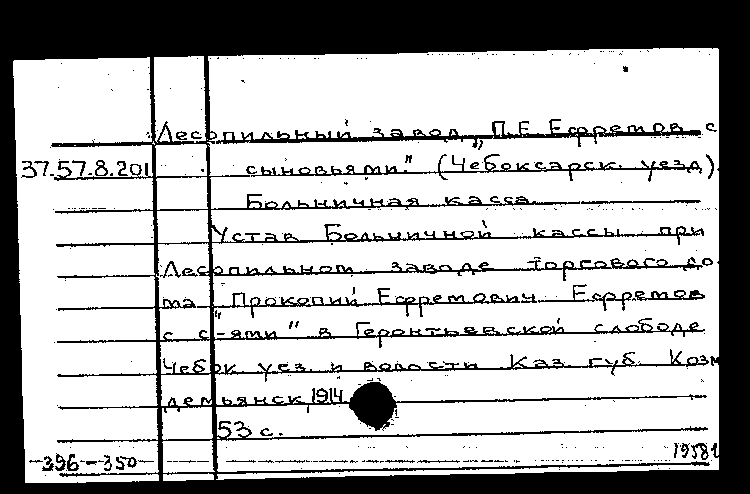 Лесопильный завод „П.Е. Ефремов с
37.57.8.201 сыновьями." (Чебоксарск. уезд).
Больничная касса.
Устав Больничной кассы при
Лесопильном заводе Торгового до-
ма „Прокопий Ефремович Ефремов
с с-ями" в Геронтьевской слободе
Чебок. уез. и волости Каз. губ. Козм
демьянск, 1914.
53 с.
396-350 19581